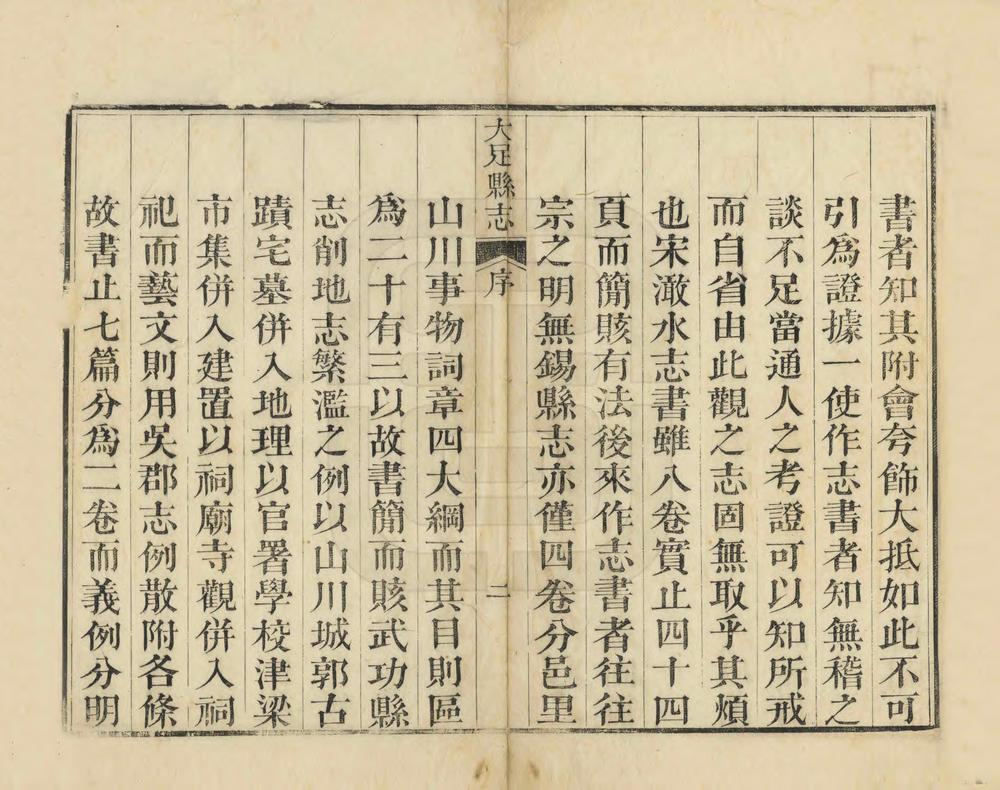 書者知其附會夸飾大抵如此不可
引爲證據一使作志書者知無稽之
談不足當通人之考證可以知所戒
而自省由此觀之志固無取乎其煩
也宋澉水志書雖八卷實止四十四
頁而簡賅有法後來作志書者往往
宗之明無錫縣志亦僅四卷分邑里
大足縣志 序 二
山川事物詞章四大綱而其目則區
爲二十有三以故書簡而賅武功縣
志削地志繁濫之例以山川城郭古
蹟宅墓併入地理以官署學校津梁
市集併入建置以祠廟寺觀併入祠
祀而藝文則用吳郡志例散附各條
故書止七篇分爲二卷而義例分明